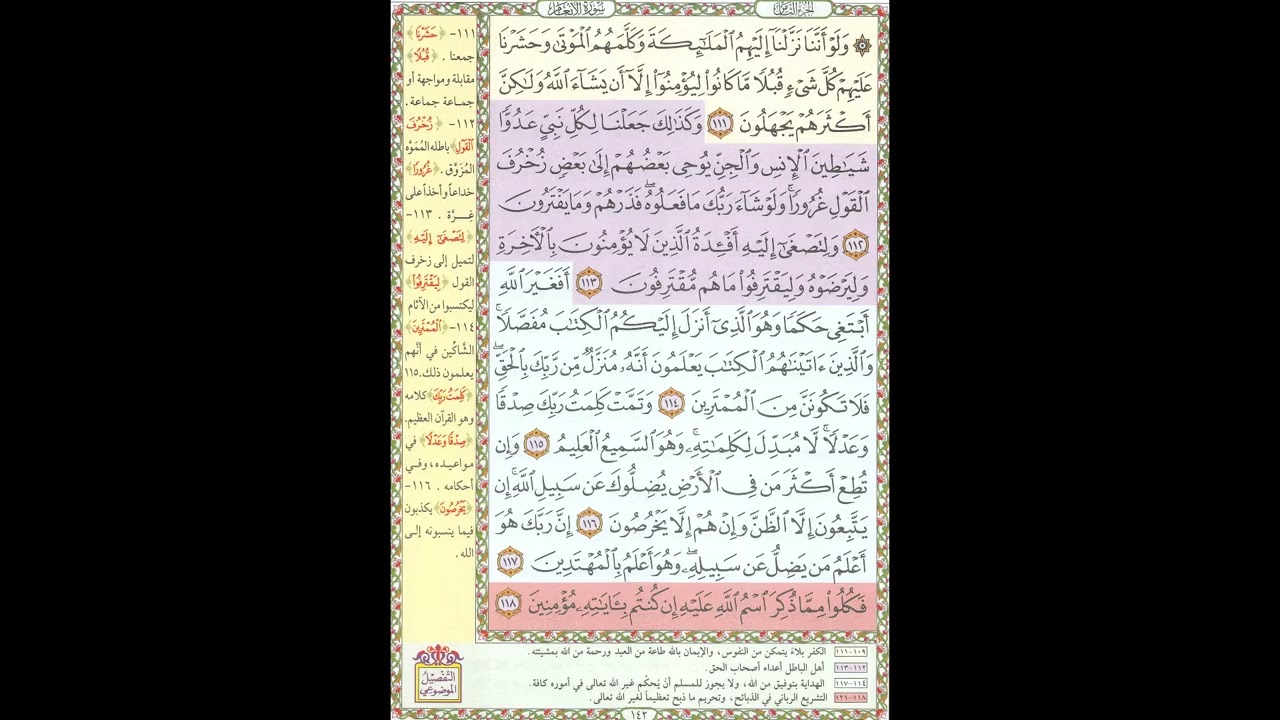 الجزء الثامن
سورة الأنعام
۞ وَلَوْ أَنَّنَا نَزَّلْنَآ إِلَيْهِمُ ٱلْمَلَـٰٓئِكَةَ وَكَلَّمَهُمُ ٱلْمَوْتَىٰ وَحَشَرْنَا
عَلَيْهِمْ كُلَّ شَىْءٍ قُبُلًا مَّا كَانُوا۟ لِيُؤْمِنُوٓا۟ إِلَّآ أَن يَشَآءَ ٱللَّهُ وَلَـٰكِنَّ
أَكْثَرَهُمْ يَجْهَلُونَ ١١١ وَكَذَٰلِكَ جَعَلْنَا لِكُلِّ نَبِىٍّ عَدُوًّا
شَيَـٰطِينَ ٱلْإِنسِ وَٱلْجِنِّ يُوحِى بَعْضُهُمْ إِلَىٰ بَعْضٍ زُخْرُفَ
ٱلْقَوْلِ غُرُورًا ۚ وَلَوْ شَآءَ رَبُّكَ مَا فَعَلُوهُ ۖ فَذَرْهُمْ وَمَا يَفْتَرُونَ
١١٢ وَلِتَصْغَىٰٓ إِلَيْهِ أَفْـِٔدَةُ ٱلَّذِينَ لَا يُؤْمِنُونَ بِٱلْـَٔاخِرَةِ
وَلِيَرْضَوْهُ وَلِيَقْتَرِفُوا۟ مَا هُم مُّقْتَرِفُونَ ١١٣ أَفَغَيْرَ ٱللَّهِ
أَبْتَغِى حَكَمًا وَهُوَ ٱلَّذِىٓ أَنزَلَ إِلَيْكُمُ ٱلْكِتَـٰبَ مُفَصَّلًا ۚ
وَٱلَّذِينَ ءَاتَيْنَـٰهُمُ ٱلْكِتَـٰبَ يَعْلَمُونَ أَنَّهُۥ مُنَزَّلٌ مِّن رَّبِّكَ بِٱلْحَقِّ ۖ
فَلَا تَكُونَنَّ مِنَ ٱلْمُمْتَرِينَ ١١٤ وَتَمَّتْ كَلِمَتُ رَبِّكَ صِدْقًا
وَعَدْلًا ۚ لَّا مُبَدِّلَ لِكَلِمَـٰتِهِۦ ۚ وَهُوَ ٱلسَّمِيعُ ٱلْعَلِيمُ ١١٥ وَإِن
تُطِعْ أَكْثَرَ مَن فِى ٱلْأَرْضِ يُضِلُّوكَ عَن سَبِيلِ ٱللَّهِ ۚ إِن
يَتَّبِعُونَ إِلَّا ٱلظَّنَّ وَإِنْ هُمْ إِلَّا يَخْرُصُونَ ١١٦ إِنَّ رَبَّكَ هُوَ
أَعْلَمُ مَن يَضِلُّ عَن سَبِيلِهِۦ ۖ وَهُوَ أَعْلَمُ بِٱلْمُهْتَدِينَ ١١٧
فَكُلُوا۟ مِمَّا ذُكِرَ ٱسْمُ ٱللَّهِ عَلَيْهِ إِن كُنتُم بِـَٔايَـٰتِهِۦ مُؤْمِنِينَ ١١٨
١١١- ﴿حَشَرْنَا﴾
جمعنا . ﴿قُبُلًا﴾
مقابلة ومواجهة أو
جماعة جماعة .
١١٢- ﴿زُخْرُفَ
ٱلْقَوْلِ﴾ باطله المُمَوَّه
المُزَوَّق . ﴿غُرُورًا﴾
خداعاً وأخذاً على
غِرَّة . ١١٣-
﴿لِتَصْغَىٰٓ إِلَيْهِ﴾
لتميل إلى زخرف
القول ﴿لِيَقْتَرِفُوا۟﴾
ليكتسبوا من الآثام
١١٤- ﴿ٱلْمُمْتَرِينَ﴾
الشَّاكِّين في أنَّهم
يعلمون ذلك. ١١٥
﴿كَلِمَتُ رَبِّكَ﴾ كلامه
وهو القرآن العظيم.
﴿صِدْقًا وَعَدْلًا﴾ في
مواعيده، وفي
أحكامه . ١١٦-
﴿يَخْرُصُونَ﴾ يكذبون
فيما ينسبونه إلى
الله .
١٠٩-١١١ الكفر بلاءٌ يتمكن من النفوس، والإيمان بالله طاعة من العبد ورحمة من الله بمشيئته .
١١٢-١١٣ أهل الباطل أعداء أصحاب الحق.
١١٤-١١٧ الهداية بتوفيق من الله، ولا يجوز للمسلم أنْ يُحكِّم غير الله تعالى في أموره كافة.
١١٨-١٢١ التشريع الرباني في الذبائح، وتحريم ما ذبح تعظيماً لغير الله تعالى.
التَّفْصِيلُ
المَوْضُوعِيُّ
١٤٢